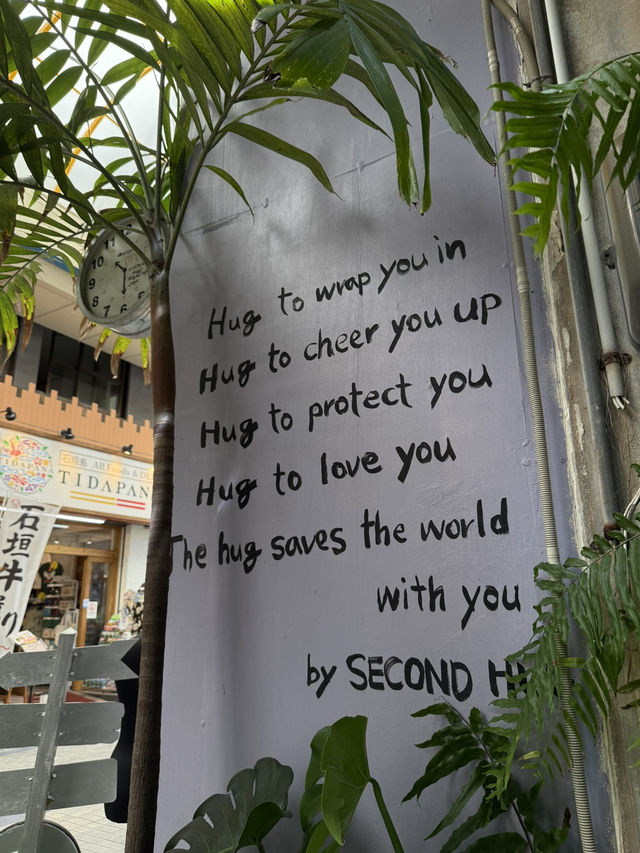 Hug to wrap you in
Hug to cheer you up
Hug to protect you
Hug to love you
The hug saves the world
with you
by SECOND
11
10
9
8
7
6
石垣島 All Foods &
TIDAPAN
石垣牛